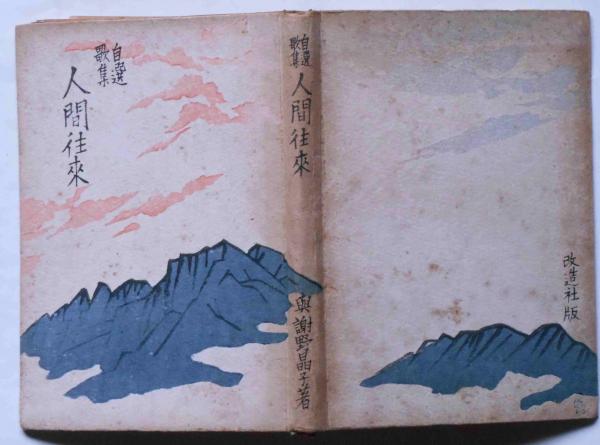 自選
歌集
人間往來
自選
歌集
人間往來
與謝野晶子著
改造社版